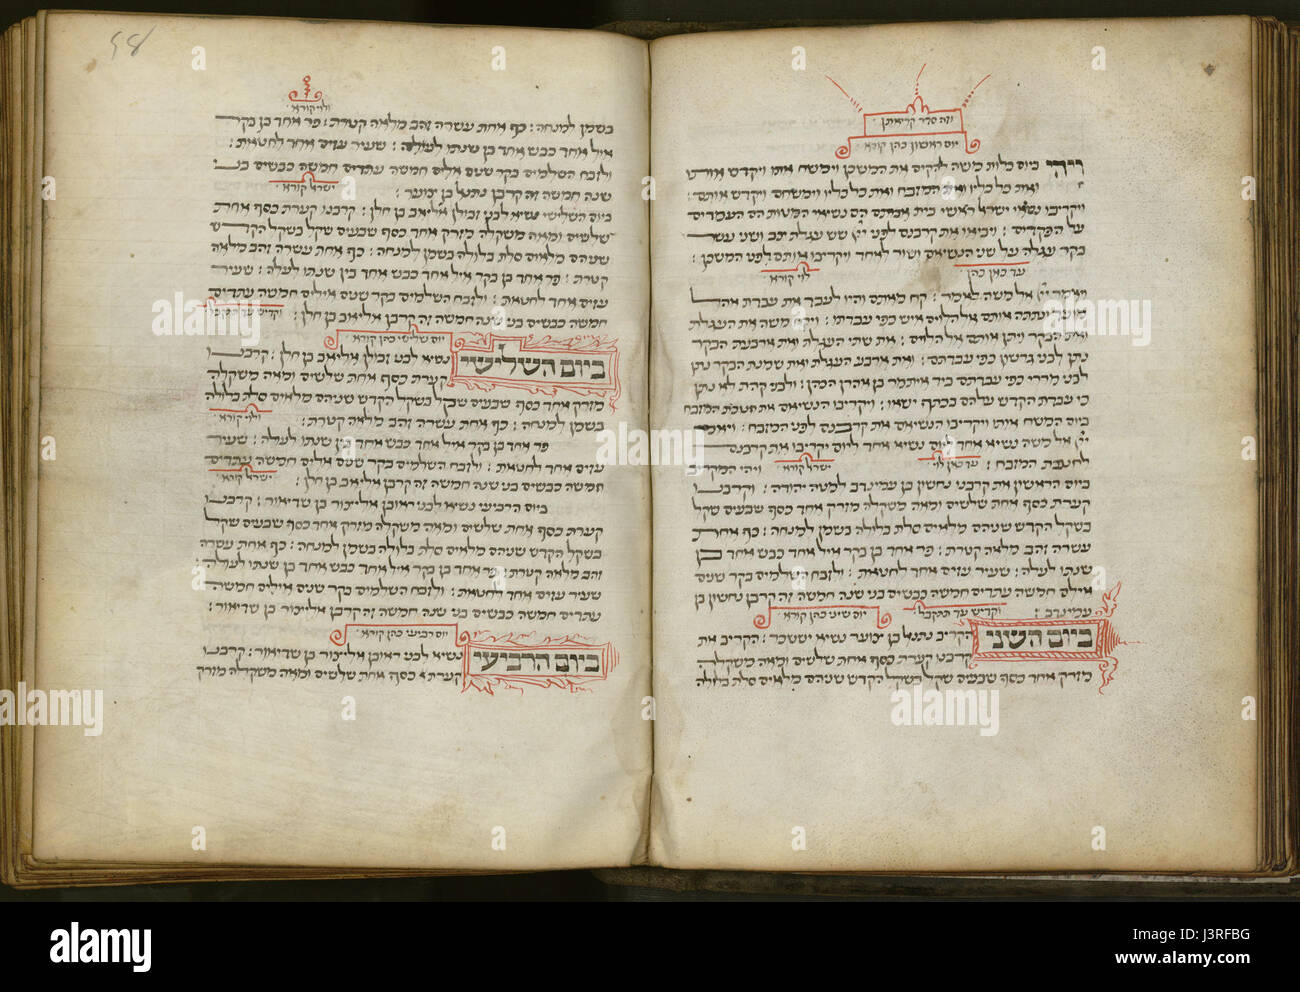 וזה סדר קריאתן
יום ראשון כהן קורא
ויהי ביום כלות משה להקים את המשכן וימשח אותו ויקדש אותו
ואת כל כליו ואת המזבח ואת כל כליו וימשחם ויקדש אותם:
ויקריבו נשיאי ישראל ראשי בית אבותם הם נשיאי המטות הם העמדים
על הפקדים: ויביאו את קרבנם לפני ייי שש עגלת צב ושני עשר
בקר עגלה על שני הנשיאים ושור לאחד ויקריבו אותם לפני המשכן:
עד כאן כהן לוי קורא
ויאמר ייי אל משה לאמר: קח מאתם והיו לעבד את עבדת אהל
מועד ונתתה אותם אל הלוים איש כפי עבדתו: ויקח משה את העגלת
ואת הבקר ויתן אותם אל הלוים: את שתי העגלת ואת ארבעת הבקר
נתן לבני גרשון כפי עבדתם: ואת ארבע העגלת ואת שמנת הבקר נתן
לבני מררי כפי עבדתם ביד איתמר בן אהרן הכהן: ולבני קהת לא נתן
כי עבדת הקדש עלהם בכתף ישאו: ויקריבו הנשיאים את חנוכת המזבח
ביום המשח אותו ויקריבו הנשיאם את קרבנם לפני המזבח: ויאמר
ייי אל משה נשיא אחד ליום נשיא אחד ליום יקריבו את קרבנם
לחנכת המזבח: עד כאן לוי ישראל קורא ויהי המקריב
ביום הראשון את קרבנו נחשון בן עמינדב למטה יהודה: וקרבנו
קערת כסף אחת שלשים ומאה משקלה מזרק אחד כסף שבעים שקל
בשקל הקדש שניהם מלאים סלת בלולה בשמן למנחה: כף אחת
עשרה זהב מלאה קטרת: פר אחד בן בקר איל אחד כבש אחד בן
שנתו לעלה: שעיר עזים אחד לחטאת: ולזבח השלמים בקר שנים
אילם חמשה עתדים חמשה כבשים בני שנה חמשה זה קרבן נחשון בן
עמינדב: וקדיש עד התקבל: יום שיני כהן קורא
ביום השני הקריב נתנאל בן צוער נשיא יששכר: הקריב את
קרבנו קערת כסף אחת שלשים ומאה משקלה
מזרק אחד כסף שבעים שקל בשקל הקדש שניהם מלאים סלת בלולה
58
ולוי קורא
בשמן למנחה: כף אחת עשרה זהב מלאה קטרת: פר אחד בן בקר
איל אחד כבש אחד בן שנתו לעולה: שעיר עזים אחד לחטאת:
ולזבח השלמים בקר שנים אילים חמשה עתדים חמשה כבשים בני
שנה חמשה זה קרבן נתנאל בן צוער: ישראל קורא
ביום השלישי נשיא לבני זבולן אליאב בן חלן: קרבנו קערת כסף אחת
שלשים ומאה משקלה מזרק אחד כסף שבעים שקל בשקל הקדש
שניהם מלאים סלת בלולה בשמן למנחה: כף אחת עשרה זהב מלאה
קטרת: פר אחד בן בקר איל אחד כבש אחד בין שנתו לעלה: שעיר
עזים אחד לחטאת: ולזבח השלמים בקר שנים אילים חמשה עתדים
חמשה כבשים בני שנה חמשה זה קרבן אליאב בן חלן: וקדיש עד התקבל
יום שלישי כהן קורא
ביום השלישי נשיא לבני זבולן אליאב בן חלן: קרבנו
קערת כסף אחת שלשים ומאה משקלה
מזרק אחד כסף שבעים שקל בשקל הקדש שניהם מלאים סלת בלולה
בשמן למנחה: כף אחת עשרה זהב מלאה קטרת: ולוי קורא
פר אחד בן בקר איל אחד כבש אחד בין שנתו לעלה: שעיר
עזים אחד לחטאת: ולזבח השלמים בקר שנים אילים חמשה עתדים
חמשה כבשים בני שנה חמשה זה קרבן אליאב בן חלן: ישראל קורא
ביום הרביעי נשיא לבני ראובן אליצור בן שדיאור: קרבנו
קערת כסף אחת שלשים ומאה משקלה מזרק אחד כסף שבעים שקל
בשקל הקדש שניהם מלאים סלת בלולה בשמן למנחה: כף אחת עשרה
זהב מלאה קטרת: פר אחד בן בקר איל אחד כבש אחד בן שנתו לעולה:
שעיר עזים אחד לחטאת: ולזבח השלמים בקר שנים אילים חמשה
עתדים חמשה כבשים בני שנה חמשה זה קרבן אליצור בן שדיאור:
יום רביעי כהן קורא
ביום הרביעי נשיא לבני ראובן אליצור בן שדיאור: קרבנו
קערת כסף אחת שלשים ומאה משקלה מזרק
alamy
Image ID: J3RFBG
www.alamy.com